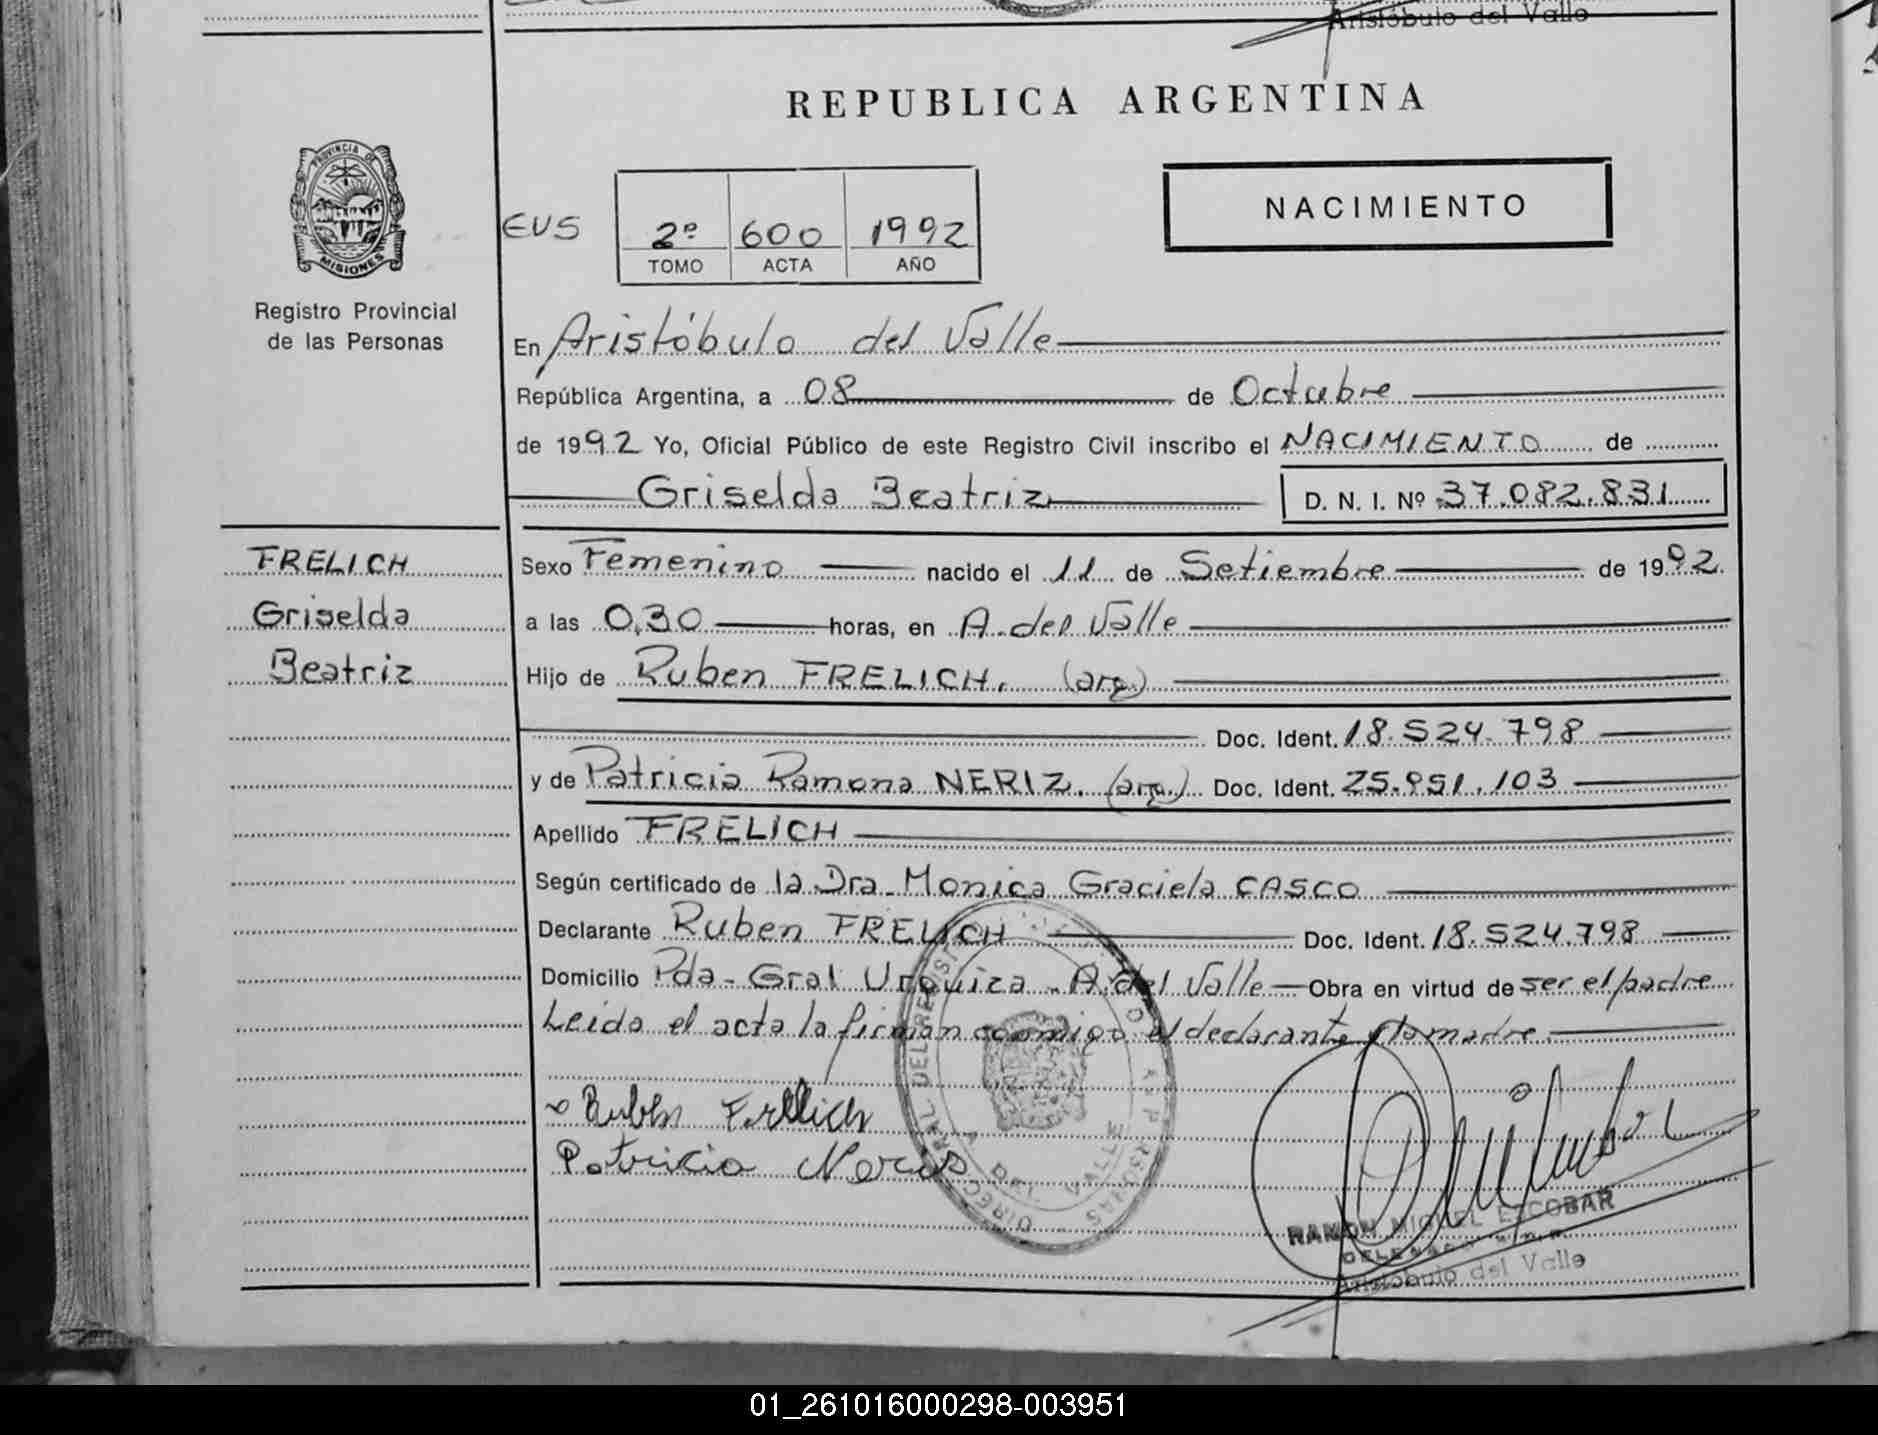 Aristóbulo del Valle
REPUBLICA ARGENTINA
PROVINCIA DE
MISIONES
Registro Provincial
de las Personas
EUS
2º 600 1992
TOMO ACTA AÑO
NACIMIENTO
En Aristóbulo del Valle
República Argentina, a 08 de Octubre
de 1992 Yo, Oficial Público de este Registro Civil inscribo el NACIMIENTO de
Griselda Beatriz D. N. I. Nº 37.082.831
FRELICH
Griselda
Beatriz
Sexo Femenino nacido el 11 de Setiembre de 1992
a las 0,30 horas, en A. del Valle
Hijo de Ruben FRELICH. (arg.)
Doc. Ident. 18.524.798
y de Patricia Ramona NERIZ. (arg.) Doc. Ident. 25.951.103
Apellido FRELICH
Según certificado de la Dra. Monica Graciela CASCO
Declarante Ruben FRELICH Doc. Ident. 18.524.798
Domicilio Pda - Gral Urquiza - A. del Valle Obra en virtud de ser el padre
Leida el acta la firman conmigo el declarante y la madre
Ruben Frelich
Patricia
DEL VALLE
RAMON MIGUEL ESCOBAR
Aristóbulo del Valle
01_261016000298-003951